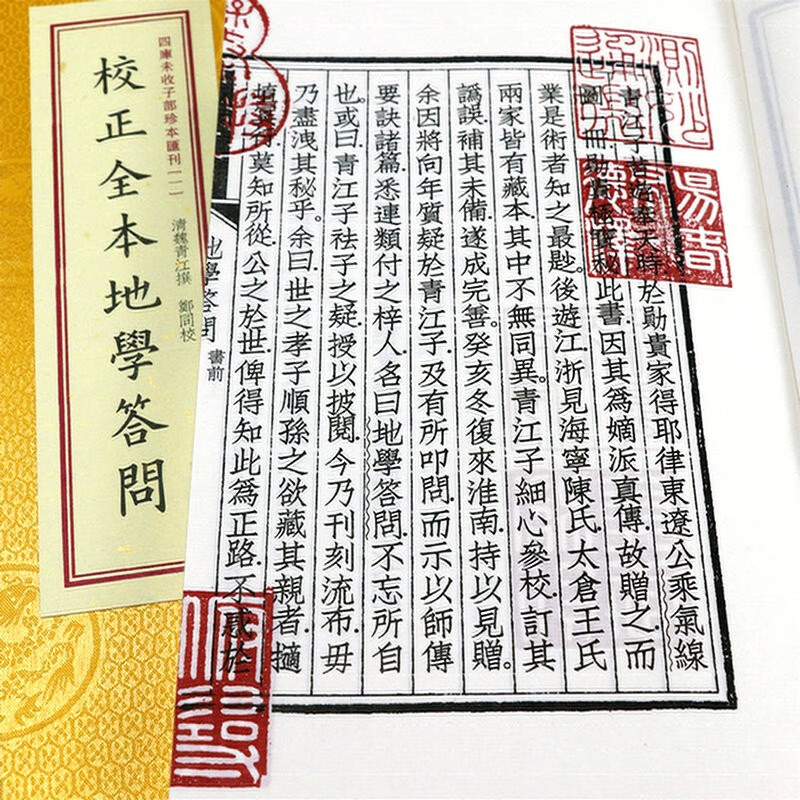 四庫未收子部珍本匯刊[一]
校正全本地學答問
清魏青江撰 鄭同校
青江子奉天時.於勛貴家得耶律東遼公乘氣線
圖一冊.勛貴秘此書.因其為嫡派真傳.故贈之.而
業是術者知之最尟.後遊江浙見海寧陳氏.太倉王氏
兩家皆有藏本其中不無同異。青江子細心參校.訂其
譌誤.補其未備.遂成完善。癸亥冬復來淮南.持以見贈。
余因將向年質疑於青江子.及有所叩問.而示以師傳
要訣諸篇.悉連類付之梓人.名曰地學答問.不忘所自
也。或曰.青江子祛子之疑.授以披閱.今乃刊刻流布.毋
乃盡洩其秘乎。余曰.世之孝子順孫之欲藏其親者.擿
莫知所從.公之於世.俾得知此為正路.不惑於
地學答問 書前